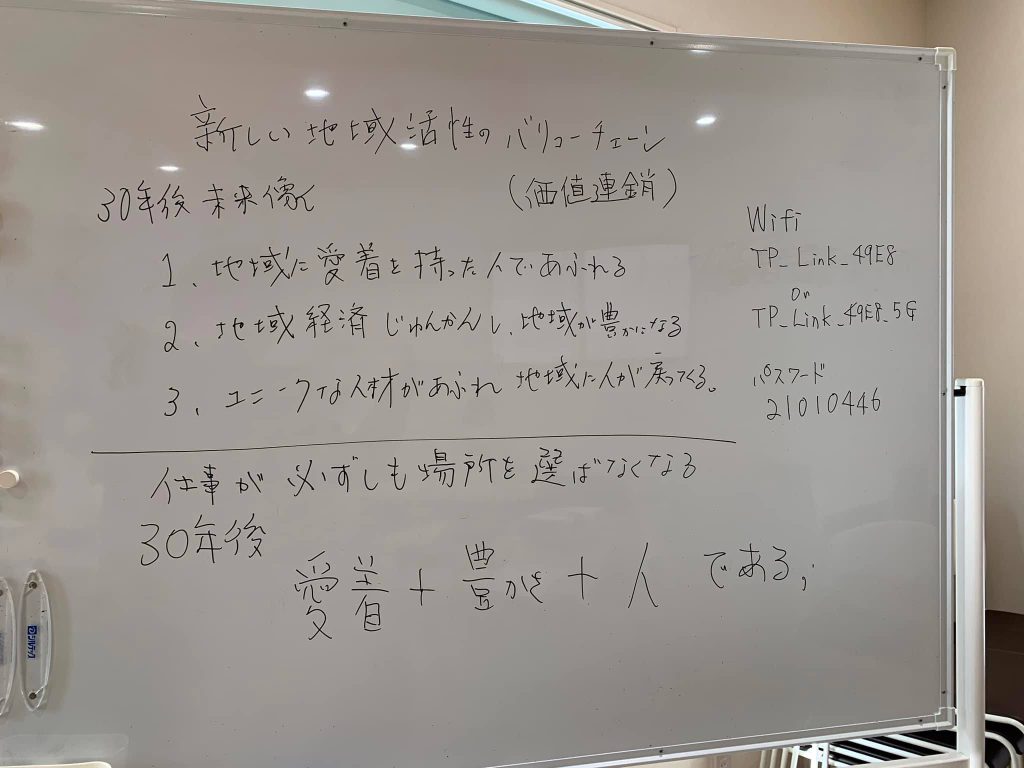 新しい地域活性のバリューチェーン
30年後 未来像
(価値連鎖)
1、地域に愛着を持った人であふれる
2、地域経済じゅんかんし、地域が豊かになる
3、ユニークな人材があふれ 地域に人が戻ってくる。
仕事が必ずしも場所を選ばなくなる
30年後
愛着+豊かさ+人 である,
Wifi
TP_Link_49E8
or
TP_Link_49E8_5G
パスワード
21010446